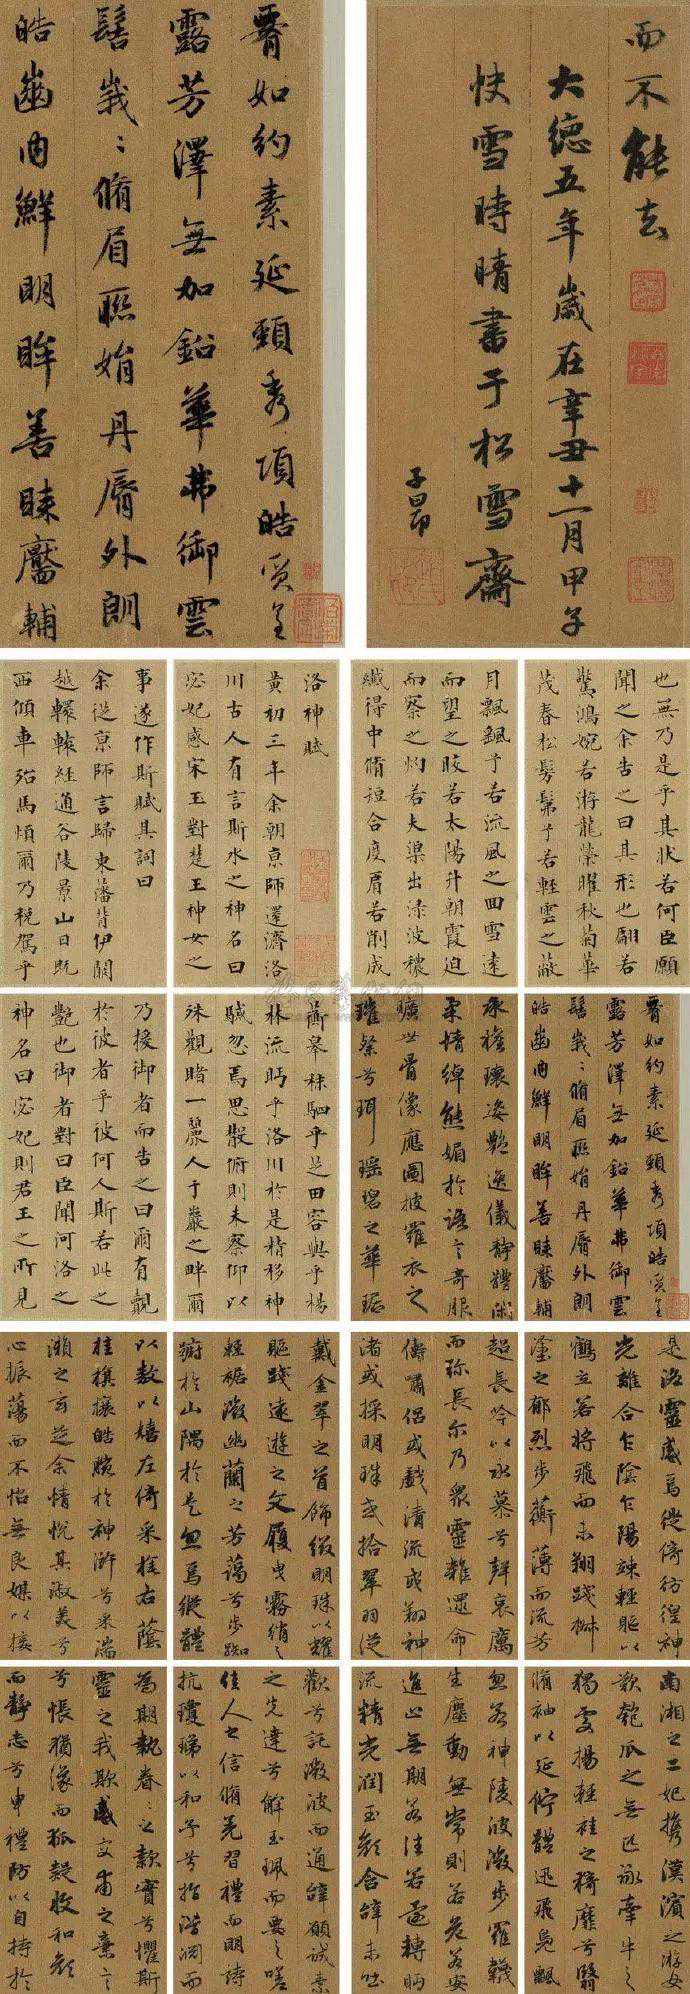 如約素延頸秀項皓質呈
露芳澤無加鉛華弗御雲
髻峩〻脩眉聯娟丹脣外朗
皓齒內鮮明眸善睞靨輔
而不能去
大德五年歲在辛丑十一月甲子
快雪時晴書于松雪齋
子昂
洛神賦
黃初三年余朝京師還濟洛
川古人有言斯水之神名曰
宓妃感宋王對楚王神女之
事遂作斯賦其詞曰
余從京師言歸東藩背伊闕
越轘轅經通谷陵景山日既
西傾車殆馬煩爾乃稅駕乎
蘅皋秣駟乎芝田容與乎楊
林流眄乎洛川於是精移神
駭忽焉思散俯則未察仰以
殊觀睹一麗人于巖之畔爾
乃援御者而告之曰爾有覿
於彼者乎彼何人斯若此之
豔也御者對曰臣聞河洛之
神名曰宓妃則君王之所見
也無乃是乎其狀若何臣願
聞之余告之曰其形也翩若
驚鴻婉若游龍榮曜秋菊華
茂春松髣髴乎若輕雲之蔽
月飄颻乎若流風之回雪遠
而望之皎若太陽升朝霞迫
而察之灼若夫蕖出淥波穠
纖得中脩短合度肩若削成
如約素延頸秀項皓質呈
露芳澤無加鉛華弗御雲
髻峩〻脩眉聯娟丹脣外朗
皓齒內鮮明眸善睞靨輔
承權瓌姿豔逸儀靜體閑
柔情綽態媚於語言奇服
曠世骨像應圖披羅衣之
璀粲兮珥瑤碧之華琚
戴金翠之首飾綴明珠以耀
軀踐遠遊之文履曳霧綃之
輕裾微幽蘭之芳藹兮步踟
躕於山隅於是忽焉縱體
以敖以嬉左倚采旄右蔭
桂旗攘皓腕於神滸兮采湍
瀨之玄芝余情悅其淑美兮
心振蕩而不怡無良媒以接
歡兮託微波而通辭願誠素
之先達兮解玉珮而要之嗟
佳人之信脩羌習禮而明詩
抗瓊珶以和予兮指潛淵而
為期執眷〻之款實兮懼斯
靈之我欺感交甫之棄言
兮悵猶豫而狐疑收和顏
而靜志兮申禮防以自持於
是洛靈感焉徙倚彷徨神
光離合乍陰乍陽竦輕軀以
鶴立若將飛而未翔踐椒
塗之郁烈步蘅薄而流芳
超長吟以永慕兮聲哀厲
而彌長爾乃眾靈雜遝命
儔嘯侶或戲清流或翔神
渚或採明珠或拾翠羽從
南湘之二妃攜漢濱之游女
歎匏瓜之無匹詠牽牛之
獨處揚輕袿之猗靡兮翳
脩袖以延佇體迅飛鳧飄
忽若神陵波微步羅韈
生塵動無常則若危若安
進止無期若往若還轉眄
流精光潤玉顏含辭未吐